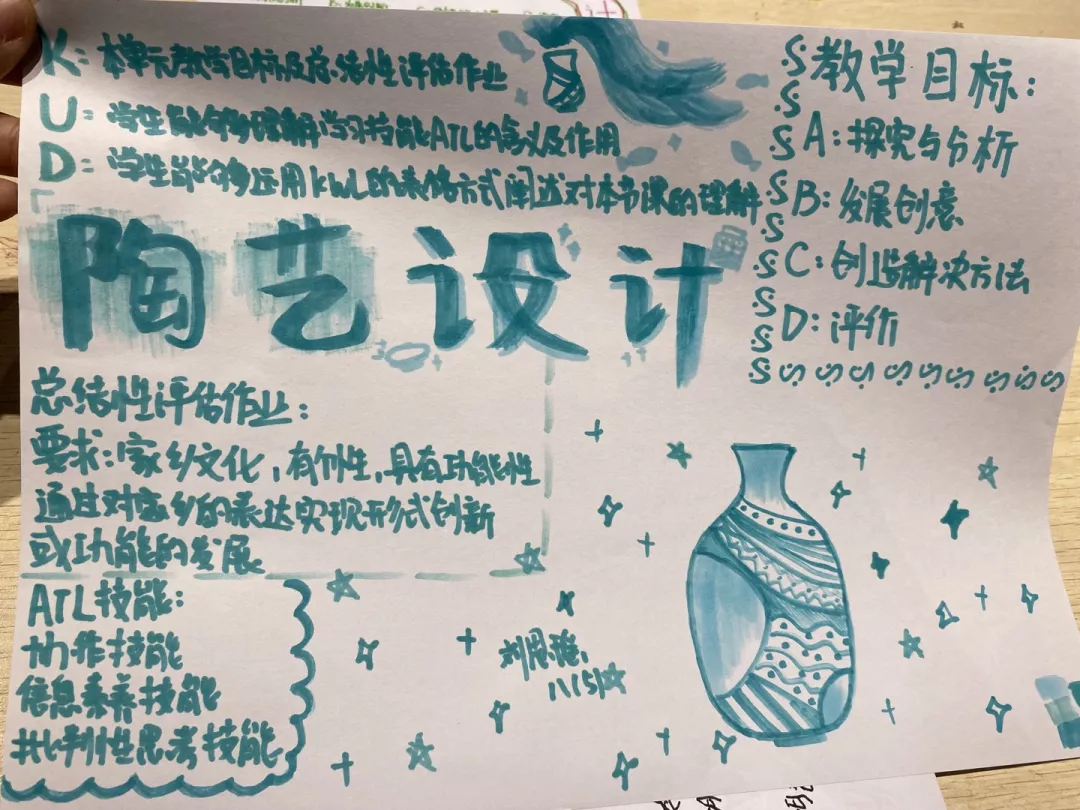 K: 本单元教学目标及总结性评估作业
U: 学生能够理解学习技能ATL的点以及作用
D: 学生能够运用KWL的表格方式阐述对本节课的理解
陶艺设计
教学目标:
A: 探究与分析
B: 发展创意
C: 创造解决方法
D: 评价
总结性评估作业:
要求: 家乡文化, 有个性, 具有功能性
通过对家乡的表达实现形式创新
或功能的发展
ATL技能:
协作技能
信息素养技能
批判性思考技能
刘恩